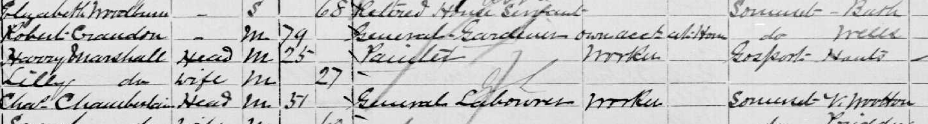 Elizabeth Woodburn - S 68 Retired House Servant Somerset - Bath
Robert Crandon - M 79 General Gardener own acct at Home do Wells
Harry Marshall Head M 25 Painter Worker Gosport Hants
Lilly do wife M 27
Chas. Chamberlain Head M 51 General Labourer Worker Somerset Wootton